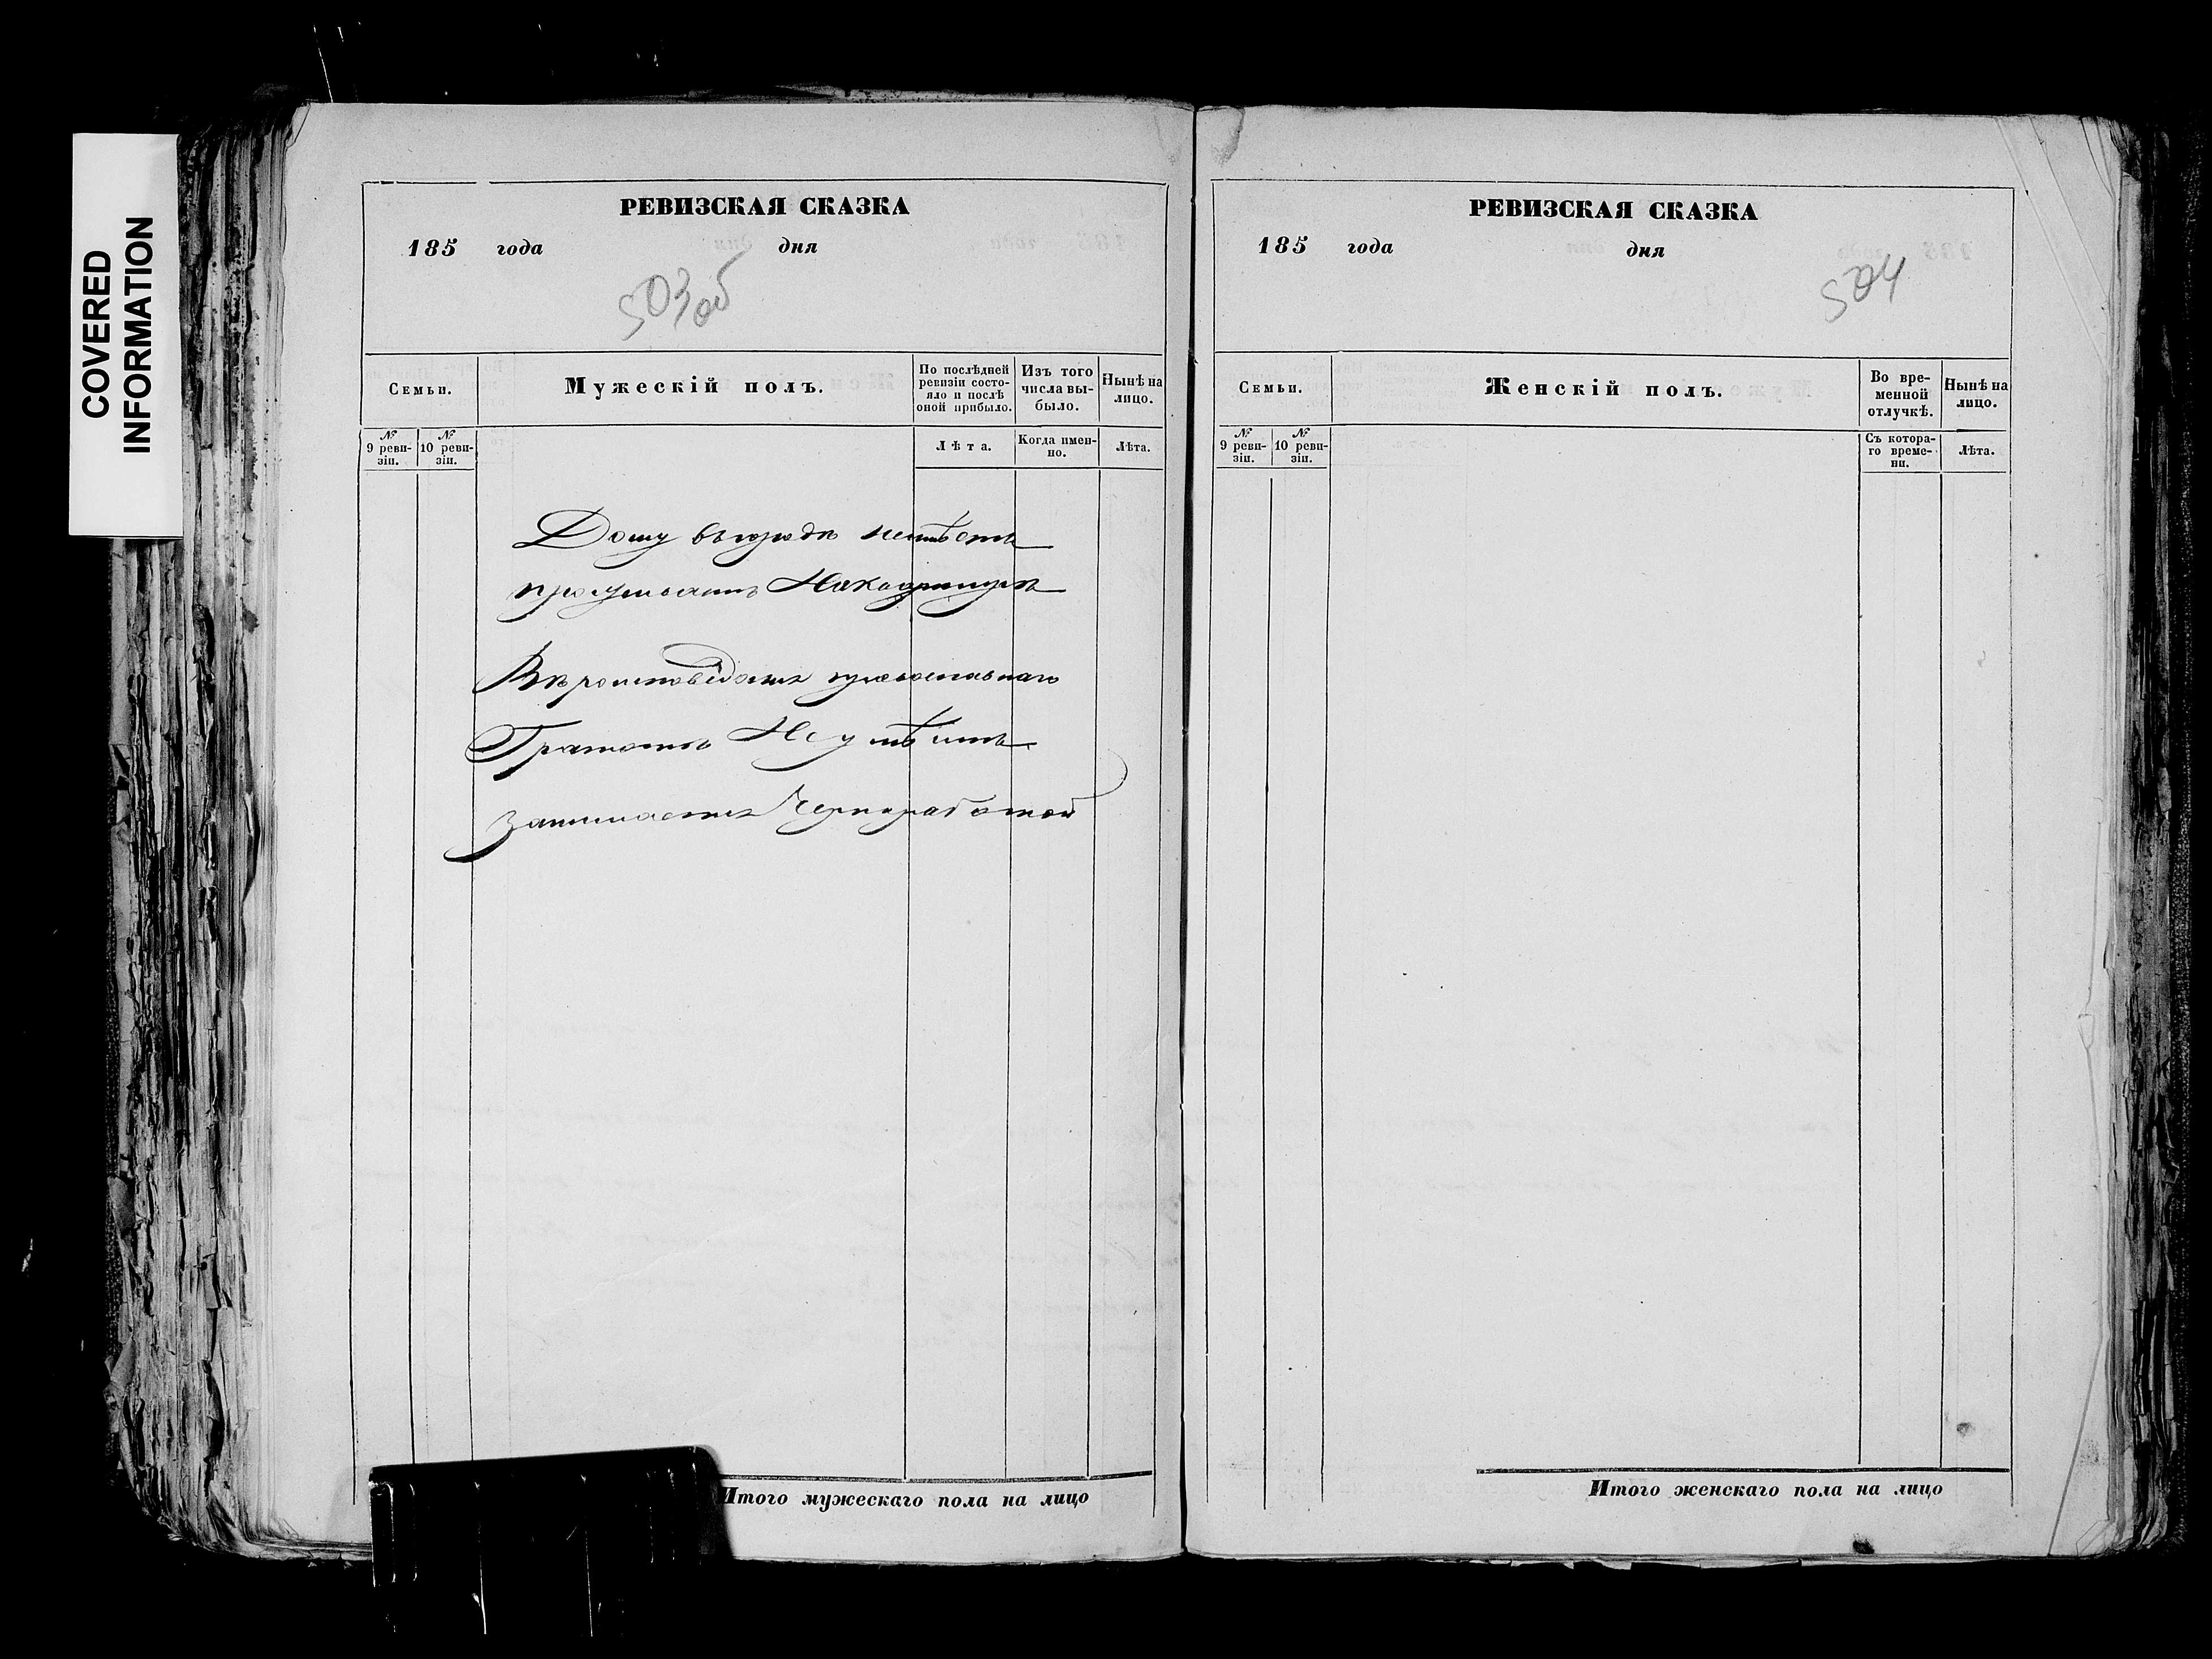 COVERED
INFORMATION
РЕВИЗСКАЯ СКАЗКА
185 года дня
503 об
Семьи.
Мужескій полъ.
По послѣдней
ревизіи состо-
яло и послѣ
оной прибыло.
Изъ того
числа вы-
было.
Нынѣ на
лицо.
№
9 реви-
зіи.
№
10 реви-
зіи.
Лѣта.
Когда имен-
но.
Лѣта.
Дому въ городѣ неимѣетъ
проживаетъ
Вѣроисповѣданія православнаго
Грамотѣ Неумѣитъ
занимается Черноработой
Итого мужескаго пола на лицо
РЕВИЗСКАЯ СКАЗКА
185 года дня
504
Семьи.
Женскій полъ.
Во вре-
менной
отлучкѣ.
Нынѣ на
лицо.
№
9 реви-
зіи.
№
10 реви-
зіи.
Съ котора-
го време-
ни.
Лѣта.
Итого женскаго пола на лицо